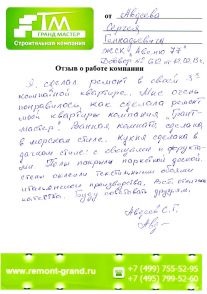 1М
ГРАНД МАСТЕР
Строительная компания
от Авдеева
Сергея
Геннадьевича
ЖСК "Авеню 77"
Договор №
Отзыв о работе компании
Я сделал ремонт в своей 3х
комнатной квартире. Мне очень
понравилось, как сделала ремонт
моей квартиры компания "Гранд-
мастер". Ванная комната сделана
в морском стиле. Кухня сделана в
дачном стиле: с овощами и фрукта-
ми. Полы покрыли паркетной доской.
Стены оклеили текстильными обоями
итальянского производства. Всё отличного
качества. Буду советовать друзьям.
Авдеев С.Г.
www.remont-grand.ru
+7 (499) 755-52-95
+7 (495) 799-52-60